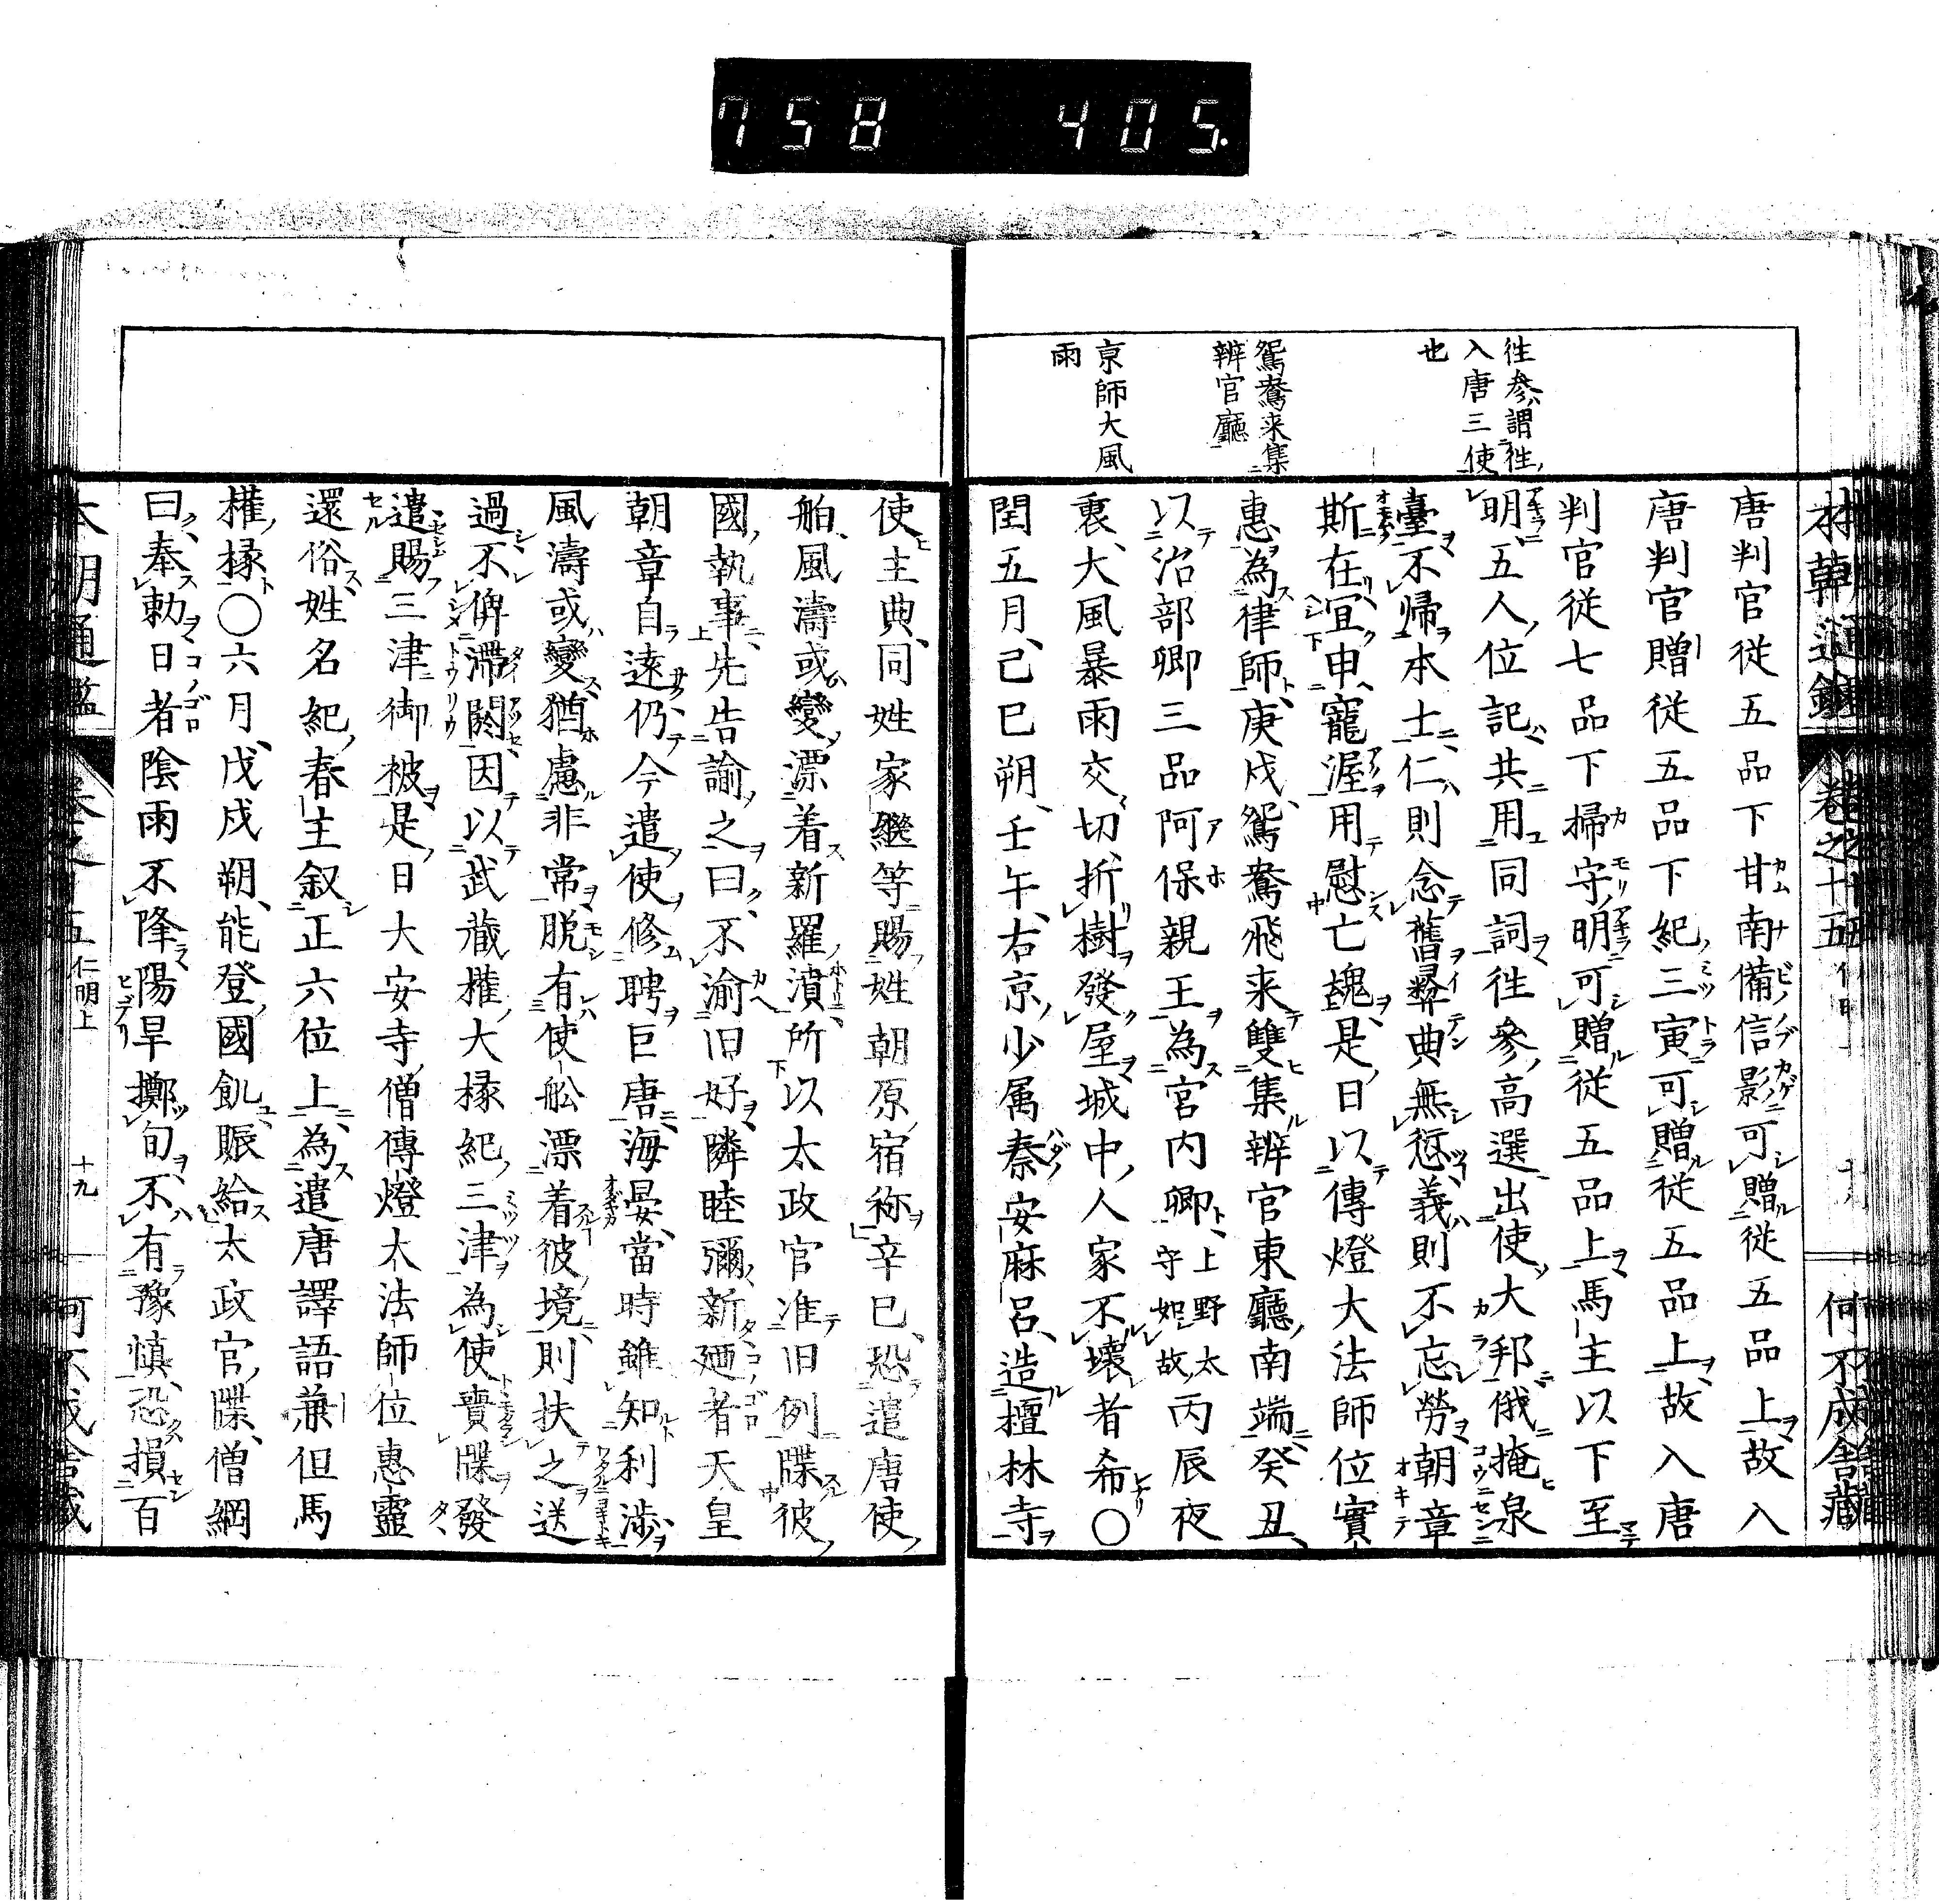 758 405.
往参謂往
入唐三使
也
鴛鴦来集
辨官廳
京師大風
雨
唐判官従五品下甘南備信影可贈従五品上故入
唐判官贈従五品下紀三寅可贈従五品上故入唐
判官従七品下掃守明可贈従五品上馬主以下至
明五人位記共用同詞往参高選出使大邦俄掩泉
臺不歸本土仁則念舊彝典無愆義則不忘勞朝章
斯在宜申寵渥用慰亡魂是日以傳燈大法師位實
惠為律師庚戌鴛鴦飛来雙集辨官東廳南端癸丑
以治部卿三品阿保親王為宮内卿上野太守如故丙辰夜
裏大風暴雨交切折樹發屋城中人家不壊者希〇
閏五月己巳朔壬午右京少属秦安麻呂造檀林寺
使主典同姓家繼等賜姓朝原宿称辛巳恐遣唐使
舶風濤或變漂着新羅濆所以太政官准旧例牒彼
國執事先告諭之曰不渝旧好隣睦彌新廼者天皇
朝章自遠仍今遣使修聘巨唐海晏當時雖知利渉
風濤或變猶慮非常脱有使舩漂着彼境則扶之送
過不俾滞閼因以武藏權大掾紀三津為使賷牒發
遣賜三津御被是日大安寺僧傳燈大法師位惠靈
還俗姓名紀春主叙正六位上為遣唐譯語兼但馬
權掾〇六月戊戌朔能登國飢賑給太政官牒僧綱
曰奉勅日者陰雨不降陽旱擲旬不有豫慎恐損百
本朝通鑑
五 仁明上
十九